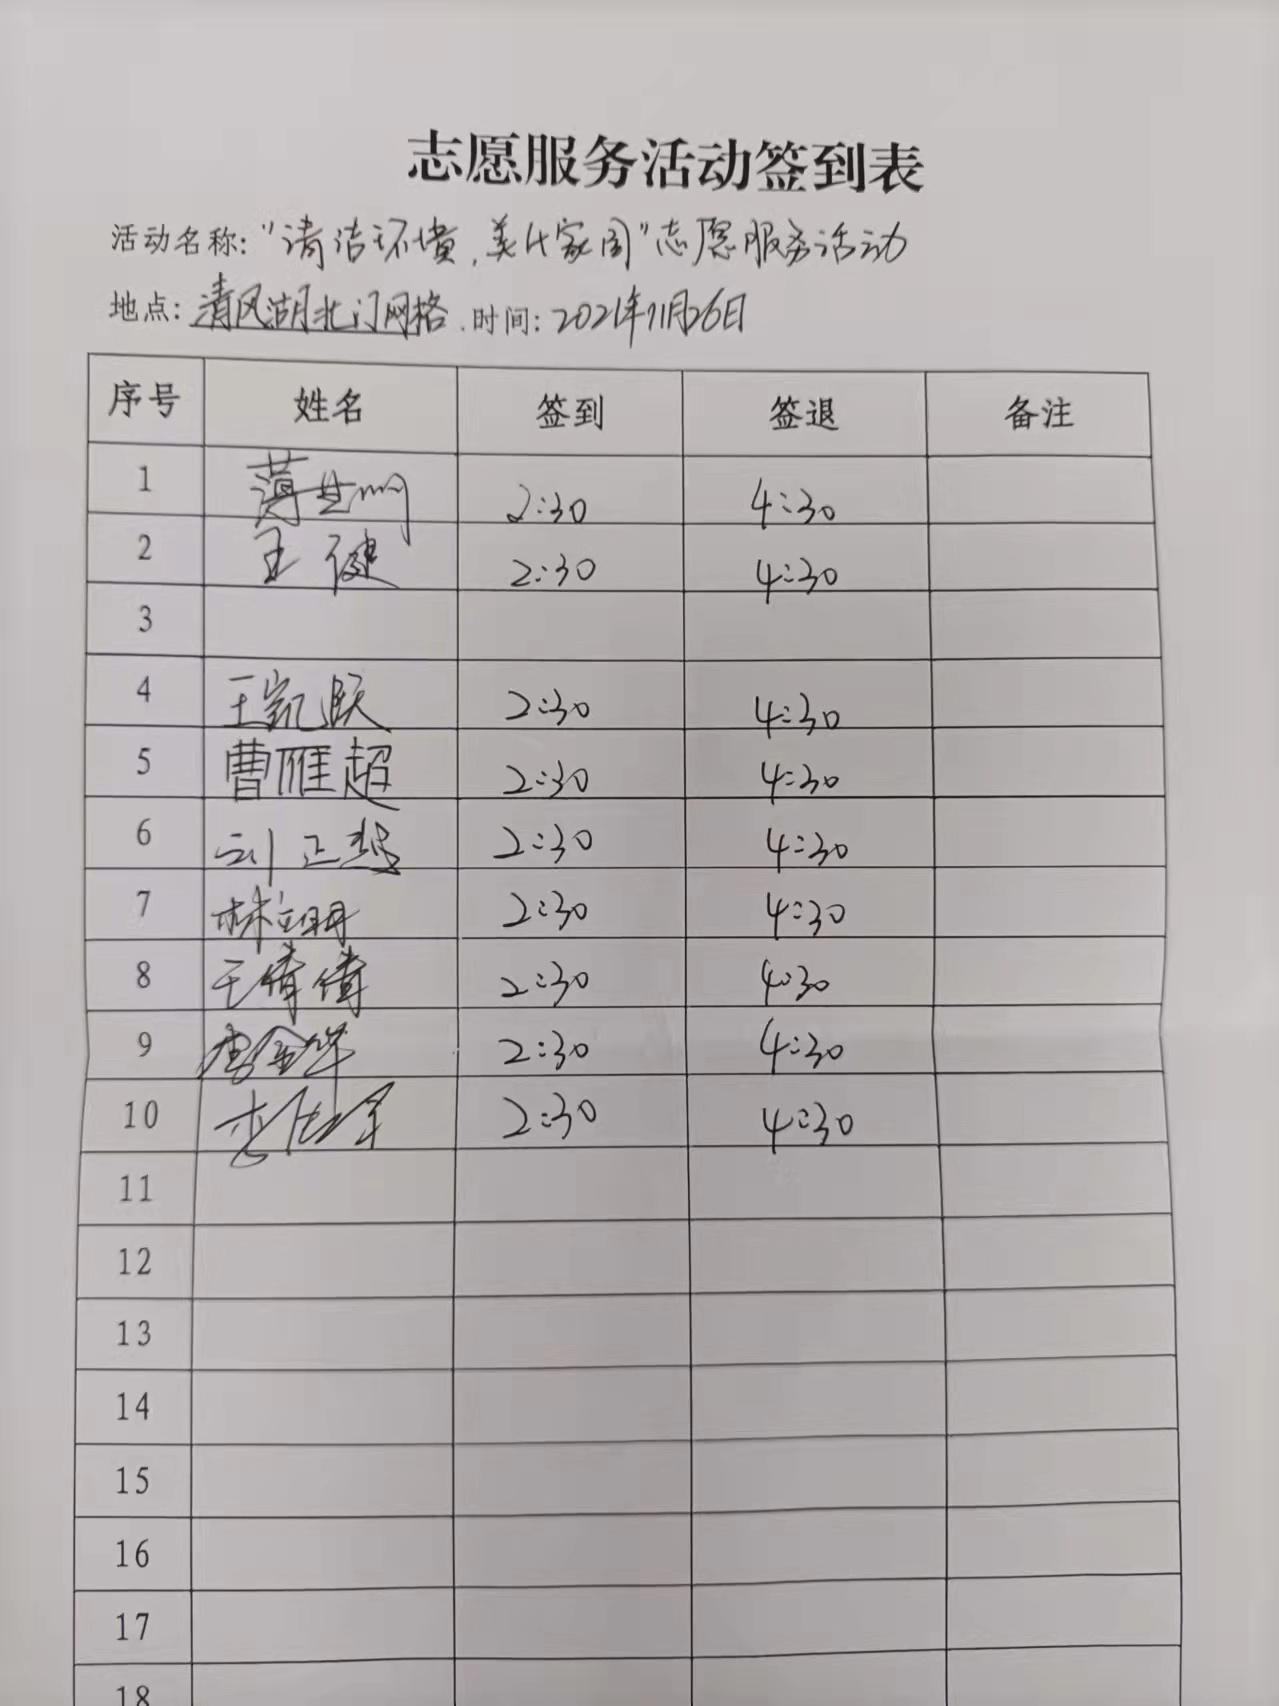 志愿服务活动签到表
活动名称："清洁环境，美化家园"志愿服务活动
地点：清风湖北门网格.时间：2021年11月26日
序号 姓名 签到 签退 备注
1 2:30 4:30
2 王健 2:30 4:30
3
4 王凯跃 2:30 4:30
5 曹雁超 2:30 4:30
6 刘正 2:30 4:30
7 林立明 2:30 4:30
8 王倩倩 2:30 4:30
9 2:30 4:30
10 李 2:30 4:30
11
12
13
14
15
16
17
18